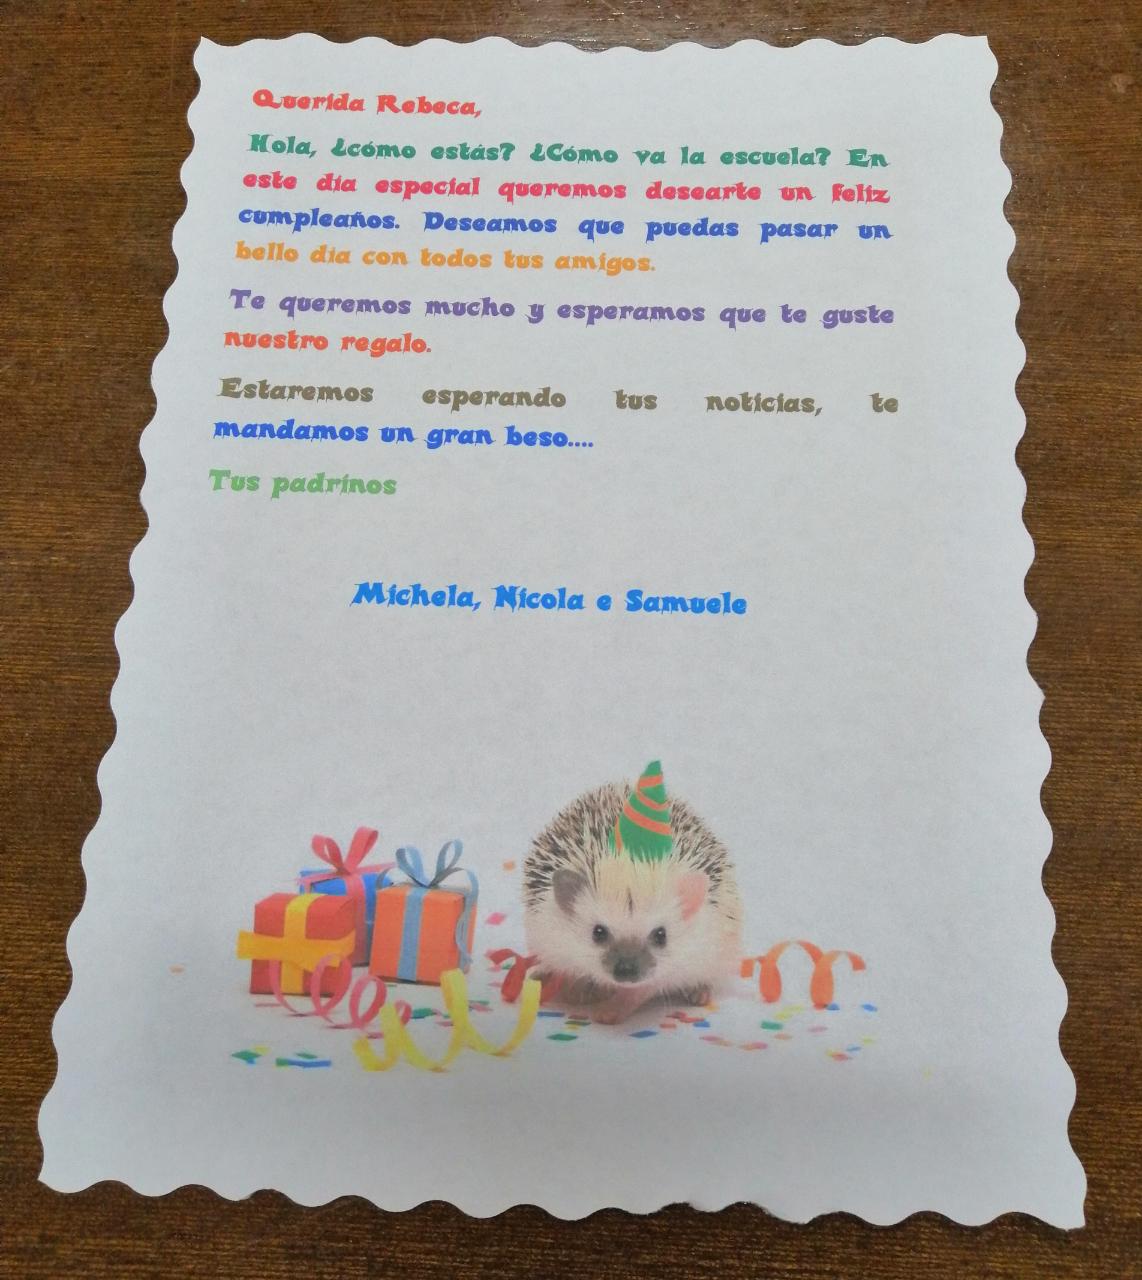 Querida Rebeca,
Hola, ¿cómo estás? ¿Cómo va la escuela? En
este día especial queremos desearte un feliz
cumpleaños. Deseamos que puedas pasar un
bello día con todos tus amigos.
Te queremos mucho y esperamos que te guste
nuestro regalo.
Estaremos esperando tus noticias, te
mandamos un gran beso....
Tus padrinos
Michela, Nicola e Samuele